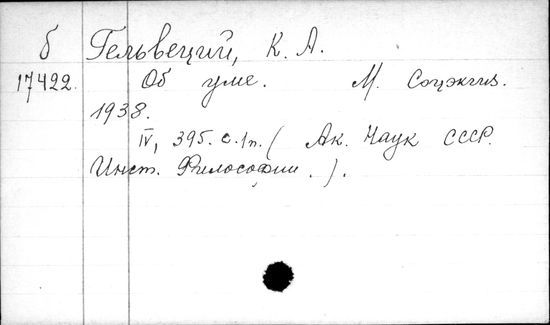 б Гельвеций, К. А.
17422. Об уме. М. Соцэкгиз.
1938.
IV, 395. с. 1 п. ( Ак. Наук СССР.
Инст. Философии. ).